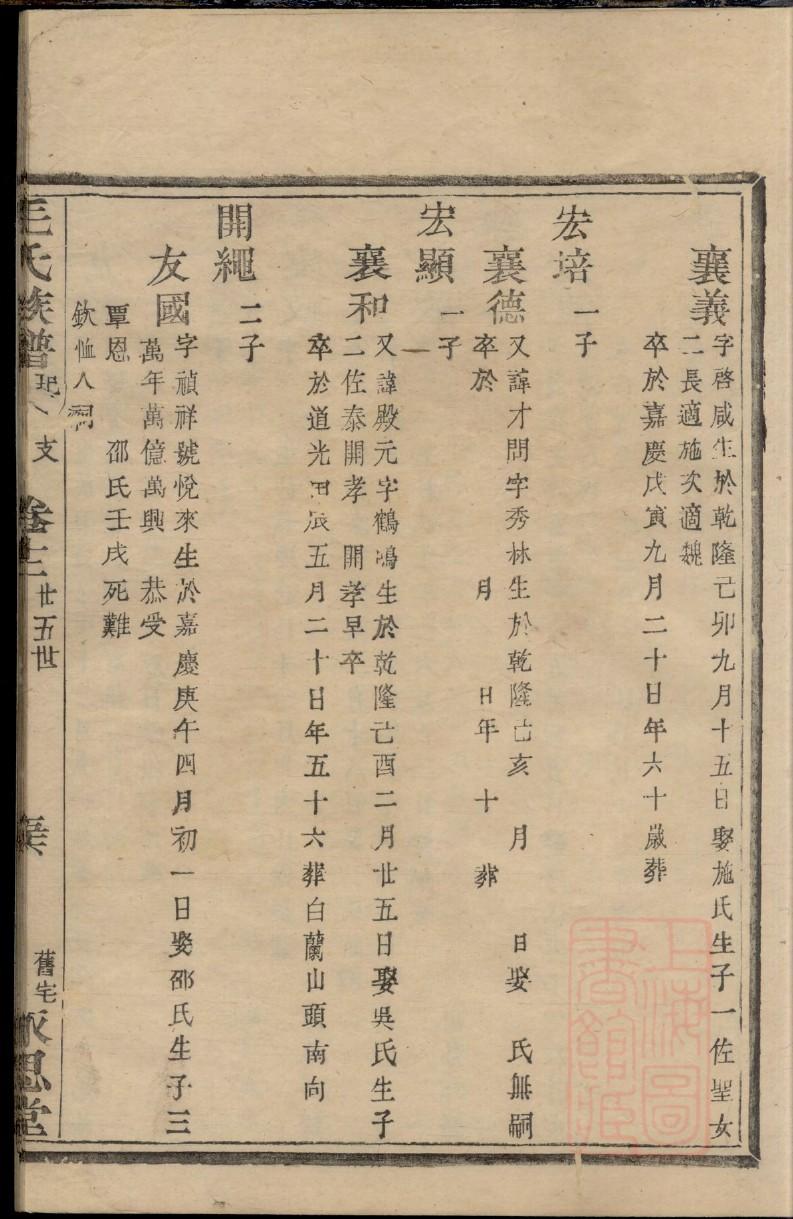 襄義
字啓咸生於乾隆己卯九月十五日娶施氏生子一佐聖女
二長適施次適魏
卒於嘉慶戊寅九月二十日年六十歲葬
宏培 一子
襄德
又諱才問字秀林生於乾隆己亥 月 日娶 氏無嗣
卒於 月 日年 十 葬
宏顯 一子
襄和
又諱殿元字鶴鳴生於乾隆己酉二月廿五日娶吳氏生子
二佐泰開孝 開孝早卒
卒於道光甲辰五月二十日年五十六葬白蘭山頭南向
開繩 二子
友國
字禎祥號悅來生於嘉慶庚午四月初一日娶邵氏生子三
萬年萬億萬興 恭受
覃恩 邵氏壬戌死難
欽恤入祠
毛氏族譜 支 卷 廿五世 舊宅 思堂
上海圖書館藏